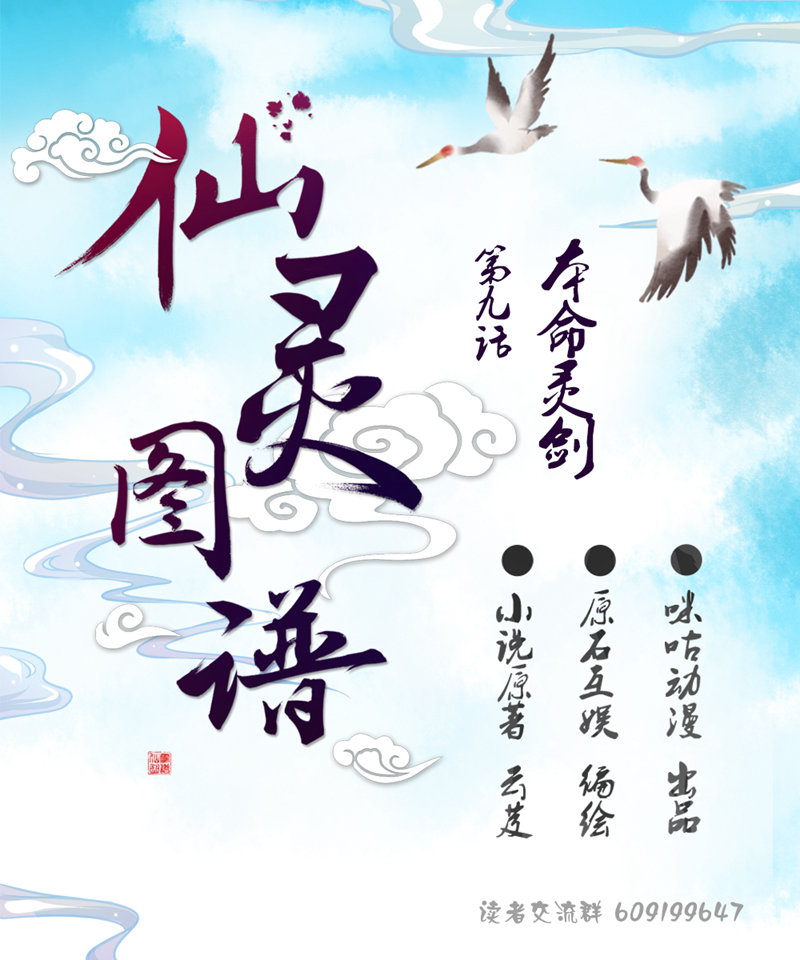 仙灵图谱
第九话
本命灵剑
咪咕动漫 出品
原石互娱 编绘
小说原著 云芨
读者交流群 609199647